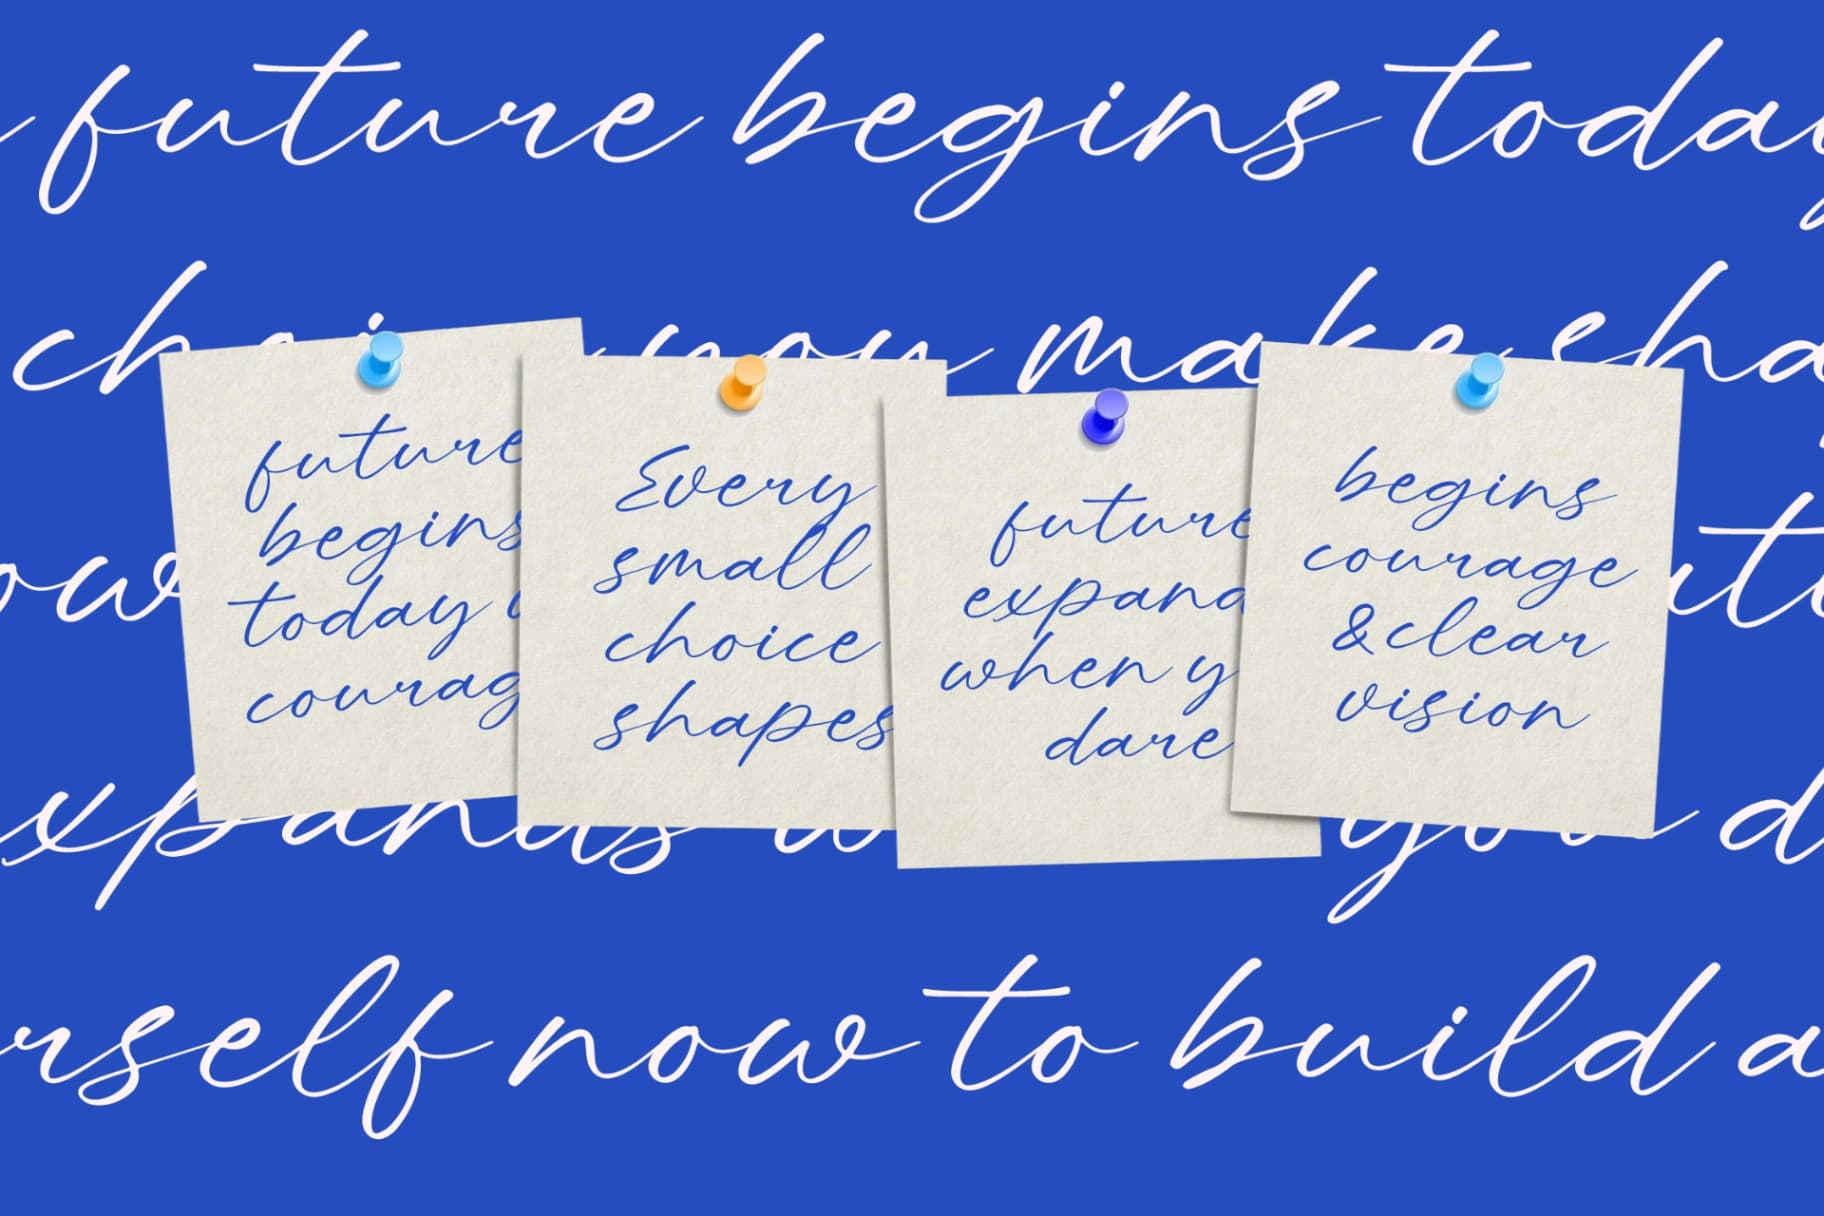 future begins today
you make
you
rself now to build a
future
begins
today
courag
Every
small
choice
shapes
future
expand
when y
dare
begins
courage
& clear
vision